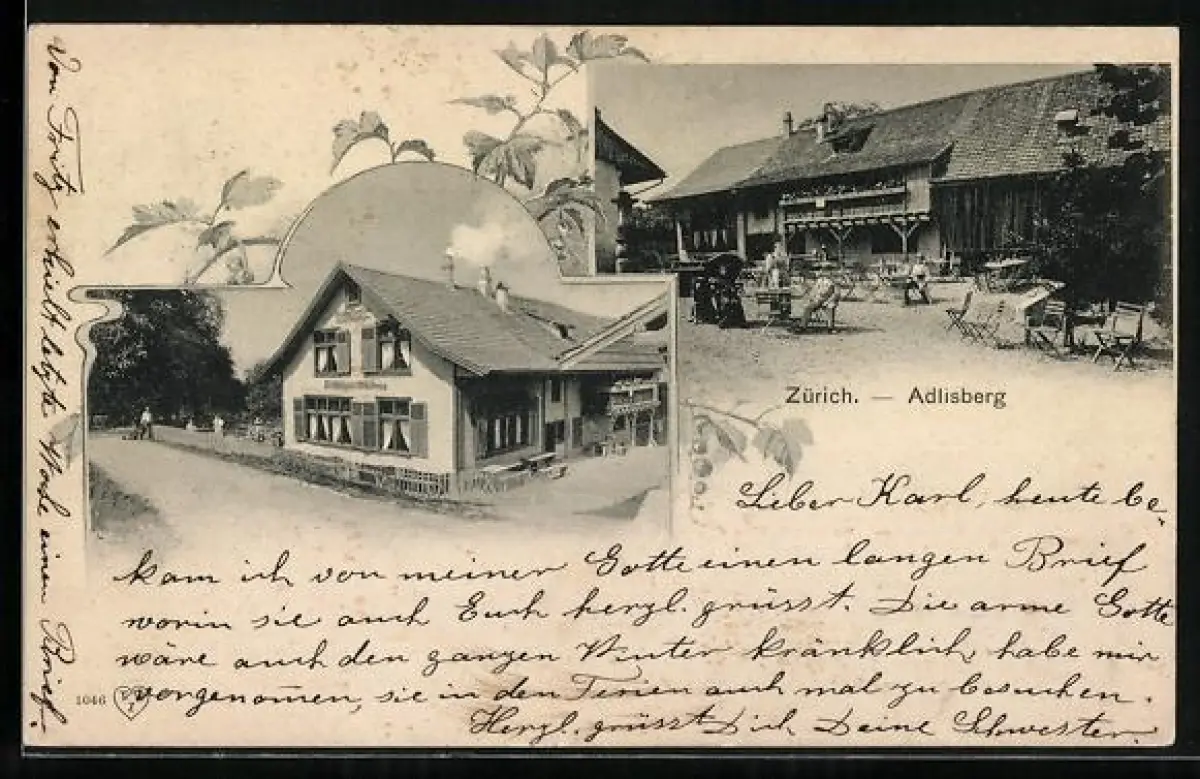 Zürich. — Adlisberg
Lieber Karl, heute be-
kam ich von meiner Gotte einen langen Brief
worin sie auch Euch herzl. grüsst. Die arme Gotte
wäre auch den ganzen Winter kränklich, habe mir
vorgenom̄en, sie in den Ferien auch mal zu besuchen.
Herzl. grüsst Dich Deine Schwester.
Von Fritz erhielt letzte Woche einen Brief.
1046